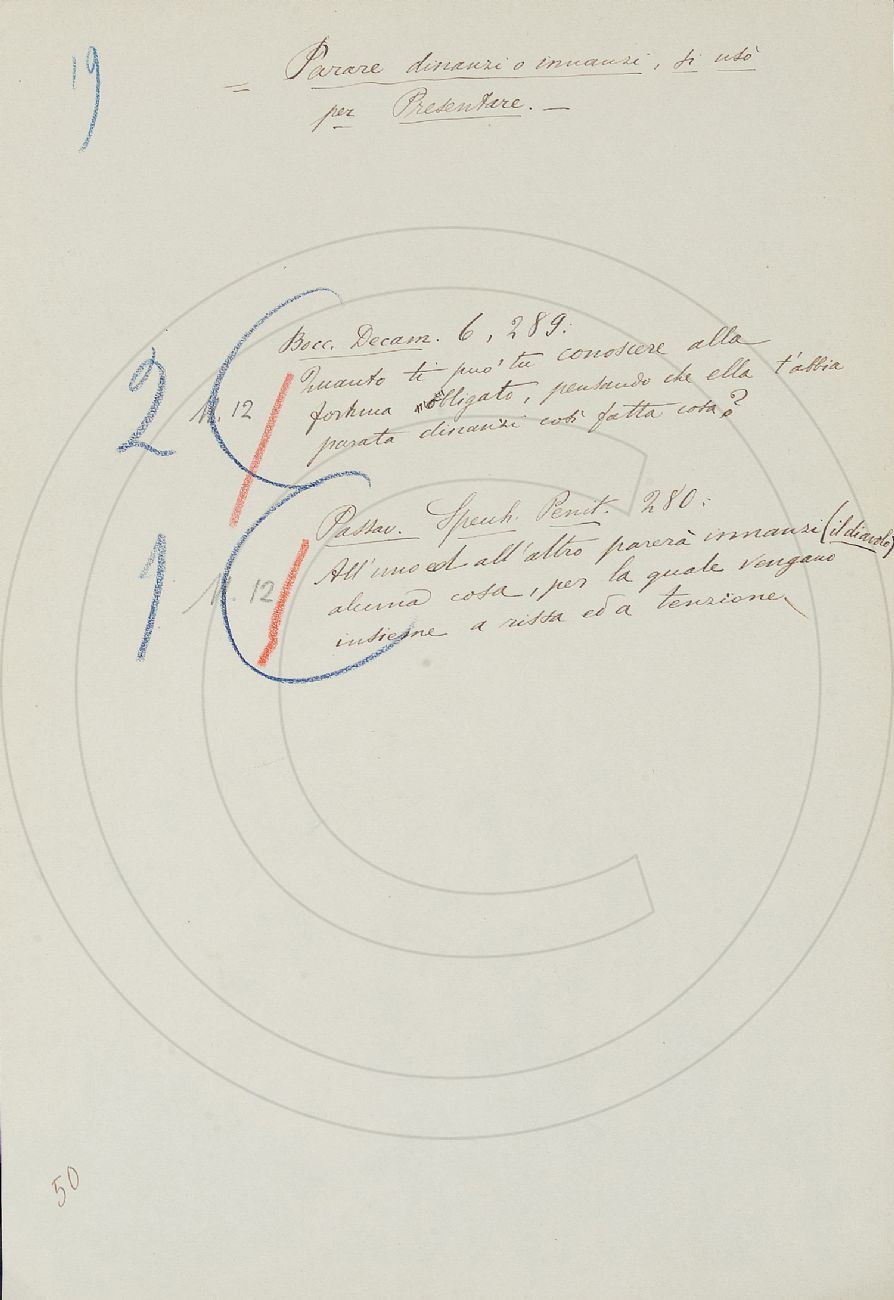 19
= Parare dinanzi o innanzi, si usò
per Presentare. —
Bocc. Decam. 6, 289:
Quanto ti puo' tu conoscere alla
fortuna obligato, pensando che ella t'abbia
parata dinanzi così fatta cosa?
2
12
Passav. Specch. Penit. 280:
All'uno ed all'altro parerà innanzi (il diavolo)
alcuna cosa, per la quale vengano
insieme a rissa ed a tenzione
1
12
50